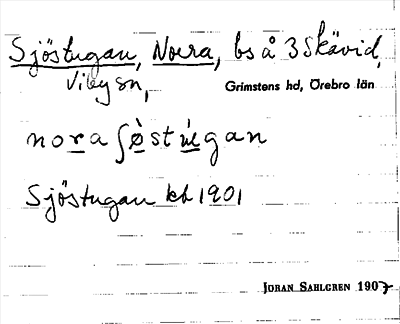 Sjöstugan, Norra, bs å 3 Skävid,
Viby sn,
Grimstens hd, Örebro län
nora ʃøstugan
Sjöstugan kb 1901
Jöran Sahlgren 1907